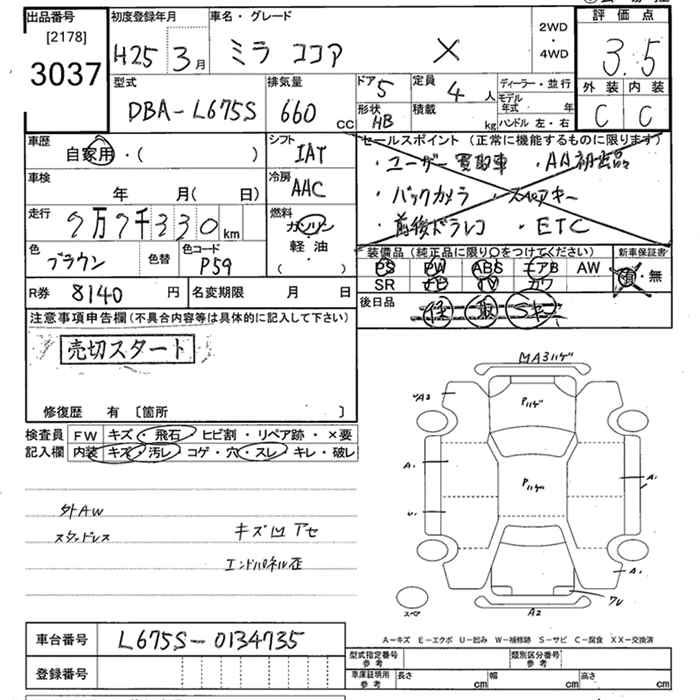 出品番号
[2178]
3037
初度登録年月
H25 3月
車名・グレード
ミラ ココア X
2WD
・
4WD
評価点
3.5
外装 内装
C C
型式
DBA-L675S
排気量
660 cc
ドア 5
形状 HB
定員 4 人
積載 kg
ディーラー・並行
モデル年式 年
ハンドル 左・右
車歴
自家用・( )
シフト
IAT
車検
年 月( 日)
冷房
AAC
走行
7万7千330km
燃料
ガソリン
軽油
( )
色
ブラウン
色替
色コード
P59
R券 8140 円
名変期限 月 日
セールスポイント(正常に機能するものに限ります)
・ユーザー買取車 ・AA初出品
・バックカメラ ・スペアキー
・前後ドラレコ ・ETC
装備品(純正品に限り○をつけてください)
新車保証書
PS PW ABS エアB AW
SR ナビ TV カワ
有・無
後日品
保 取 Sキー
注意事項申告欄(不具合内容等は具体的に記入して下さい)
売切スタート
修復歴 有 〔箇所 〕
検査員記入欄
FW キズ・飛石・ヒビ割・リペア跡・×要
内装 キズ・汚レ・コゲ・穴・スレ・キレ・破レ
外AW
スタッドレス
キズ凹アセ
エンドパネル歪
MA3ハゲ
Pハゲ
A1
Pハゲ
A1
U1
A1
スペア
A2
A-キズ E-エクボ U-凹み W-補修跡 S-サビ C-腐食 XX-交換済
車台番号 L675S-0134735
登録番号
型式指定番号
参考
類別区分番号
参考
車庫証明用
参考
長さ cm 幅 cm 高さ cm